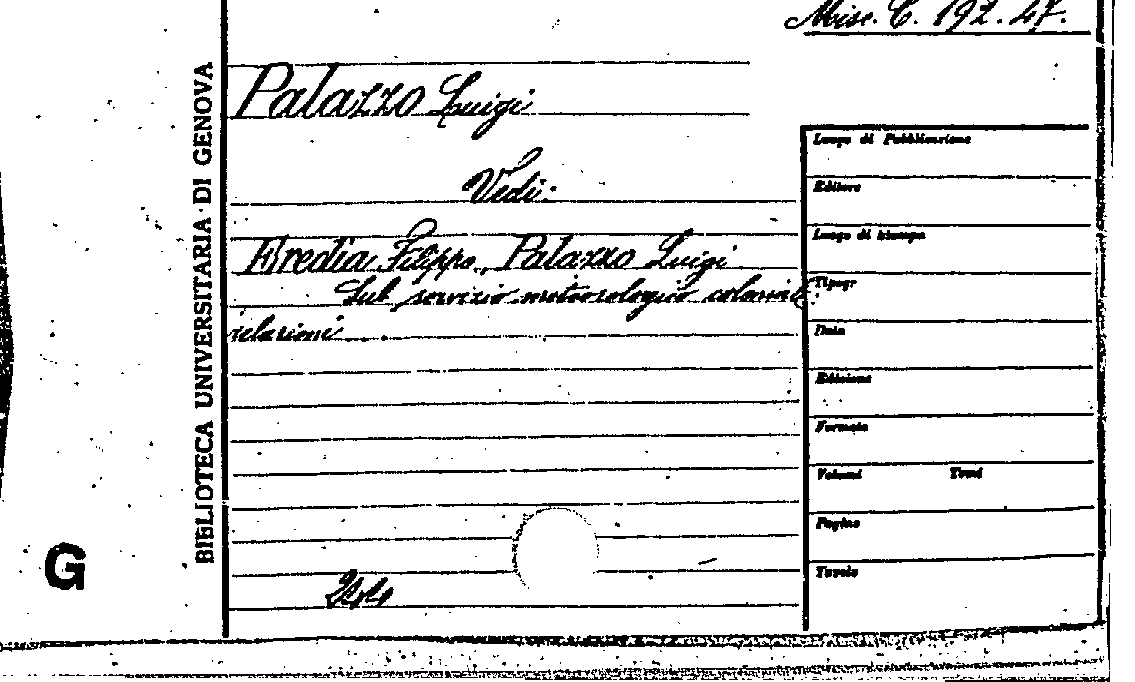 Misc. C. 192. 47.
Palazzo Luigi
Vedi:
Eredia Filippo, Palazzo Luigi
Sul servizio meteorologico coloniale:
relazioni
244
BIBLIOTECA UNIVERSITARIA DI GENOVA
G
Luogo di Pubblicazione
Editore
Luogo di stampa
Tipogr
Data
Edizione
Formato
Volumi Tomi
Pagine
Tavole